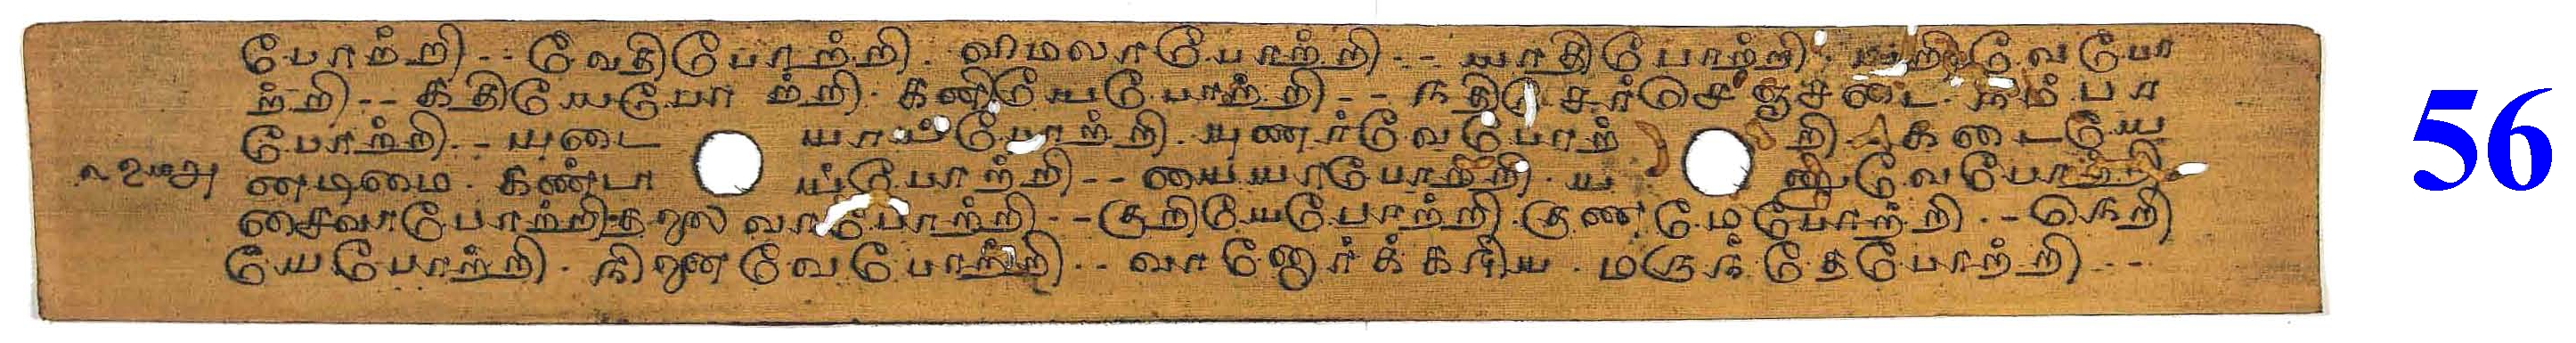 போற்றி - - வேதிபோற்றி. விமலாபோற்றி - - யாதிபோற்றி. யறிவேபோ
ற்றி - - கதியேபோற்றி. கனியேபோற்றி - - நதிசேர்செஞ்சடை. நம்பா
போற்றி - - யுடையாய்போற்றி. யுணர்வேபோற்றி - கடையே
னடிமை. கண்டாய்போற்றி - - யையாபோற்றி. யணுவேபோற்றி
சைவாபோற்றி. தலைவாபோற்றி - - குறியேபோற்றி. குணமேபோற்றி. - நெறி
யேபோற்றி. நினைவேபோற்றி - - வானோர்க்கரிய. மருந்தேபோற்றி - -
56